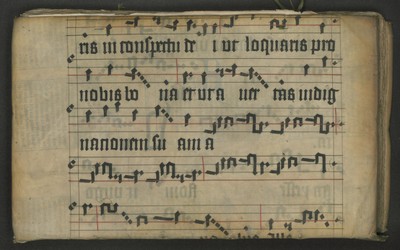 ris in conspectu de i ut loquaris pro
nobis bo na et ut a ver tas indig
nationem su am a